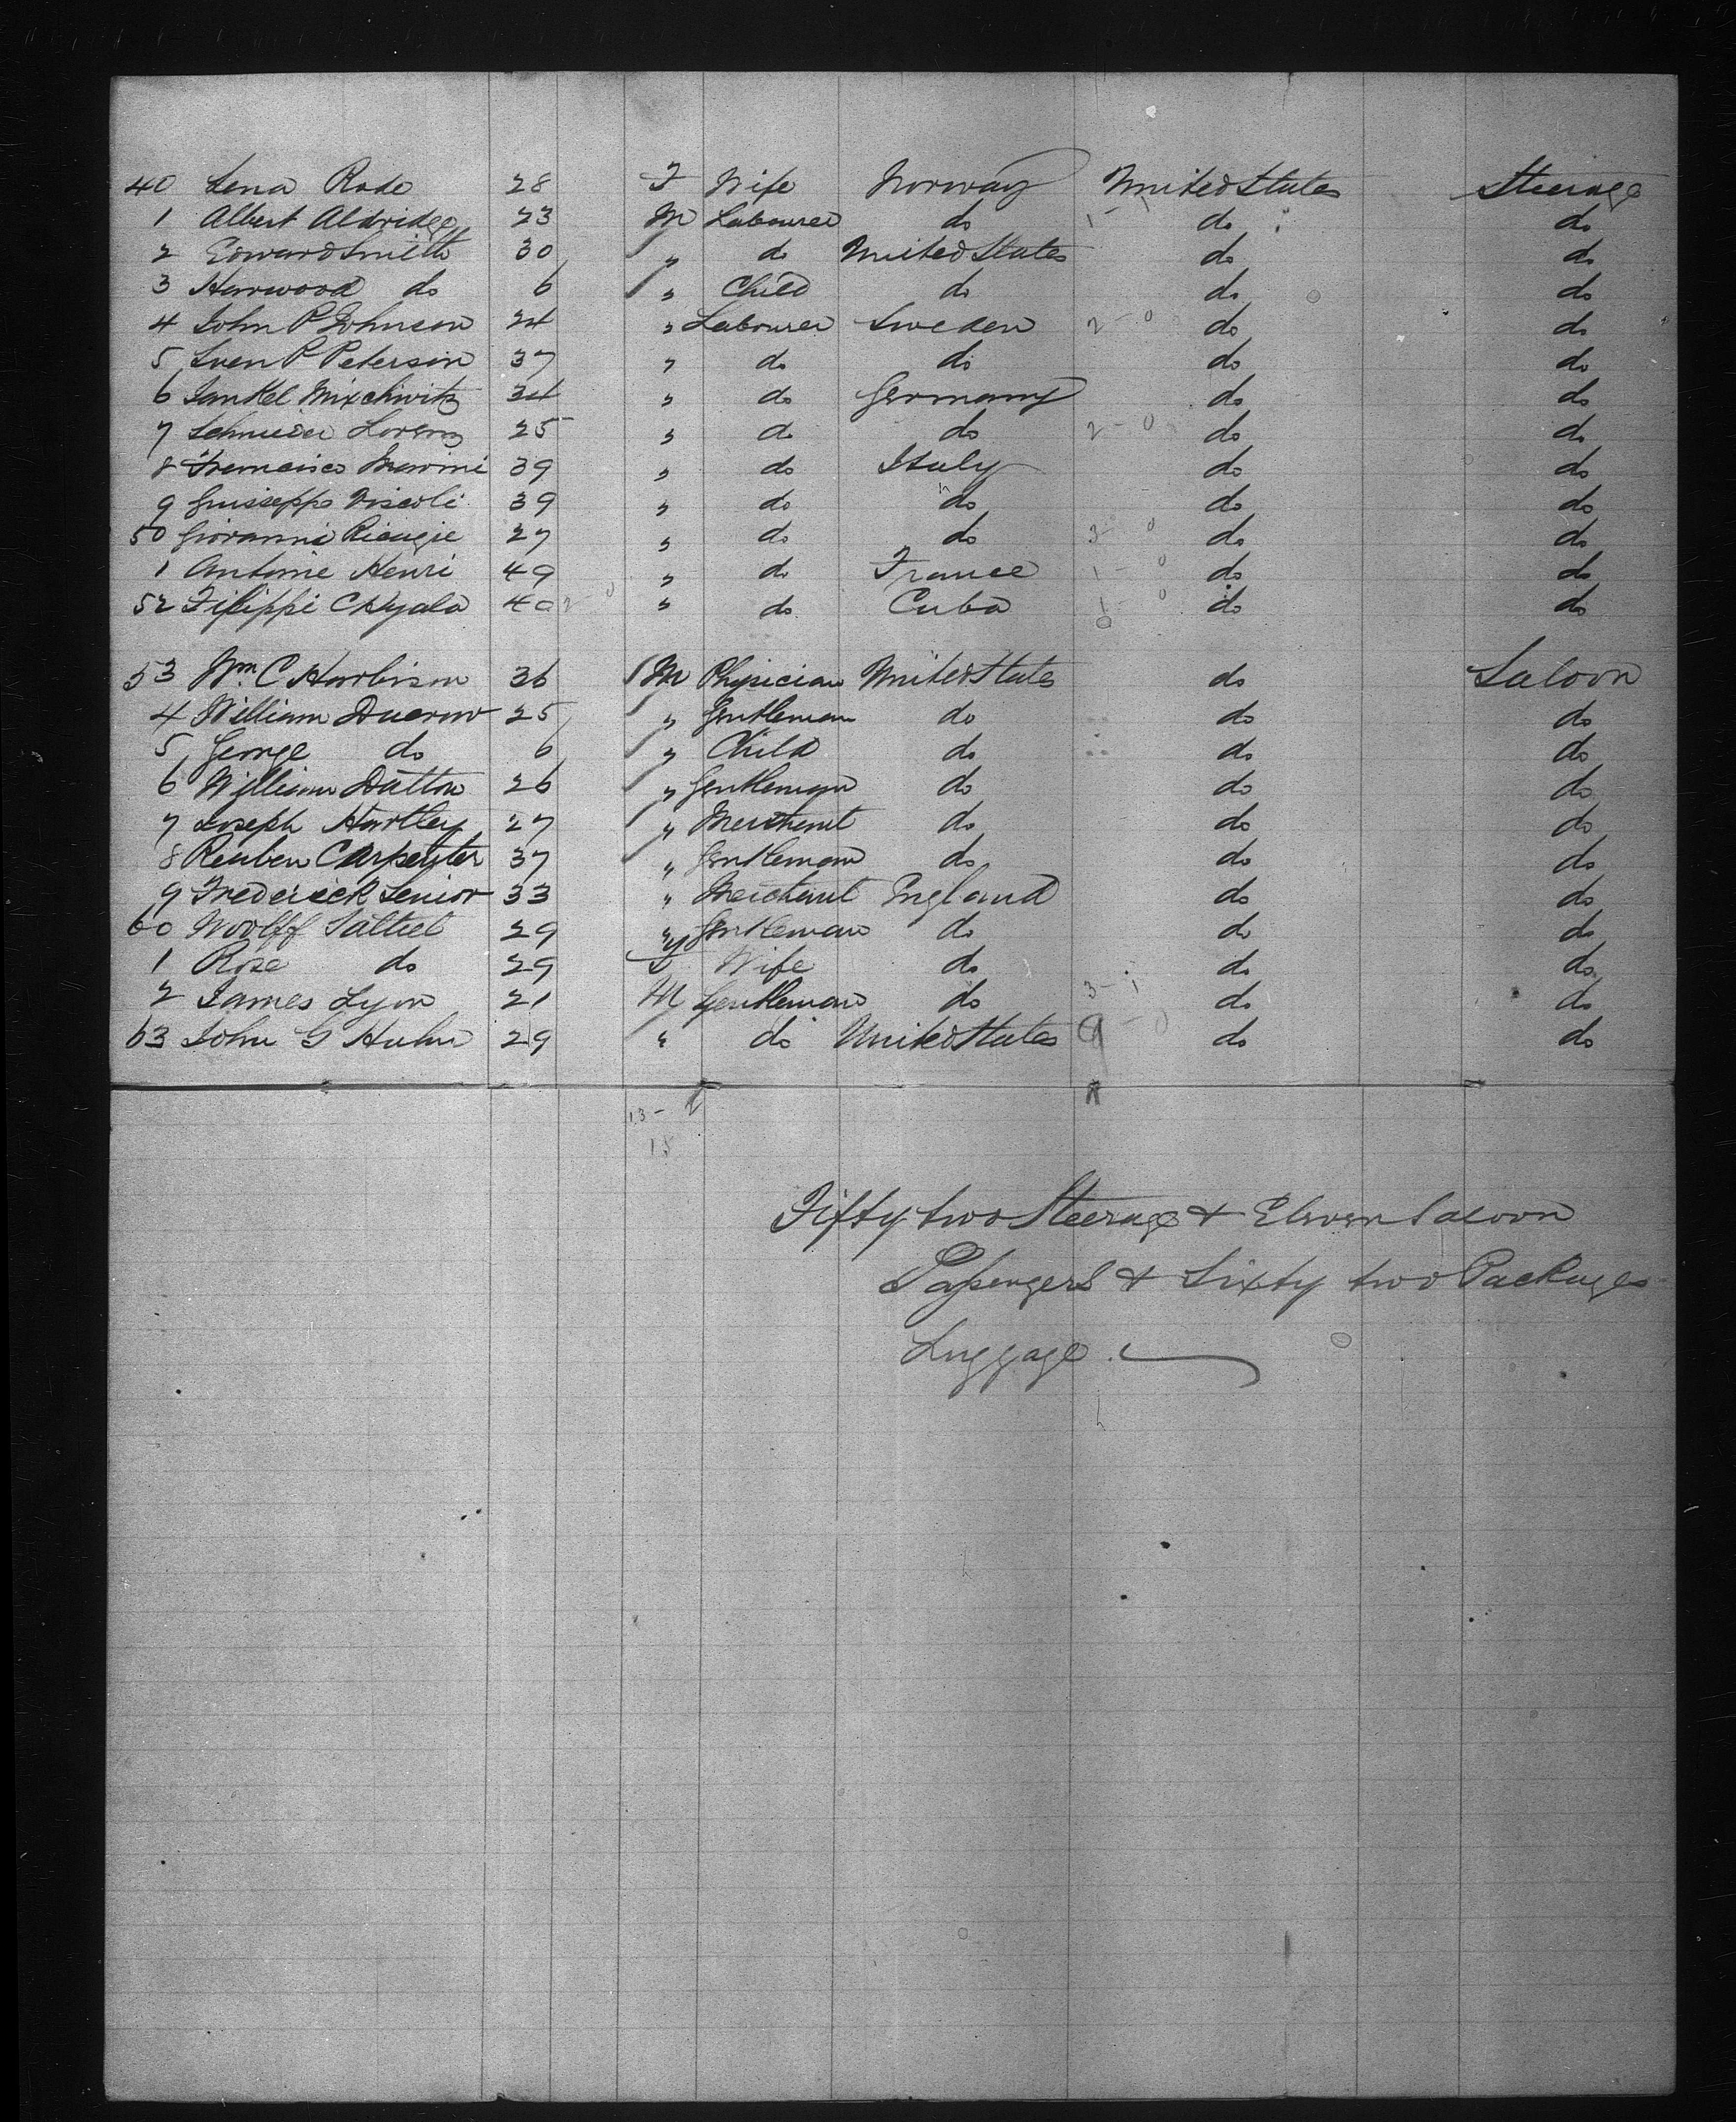 40 Lena Rode 28 F Wife Norway United States Steerage
1 Albert Aldridge 23 M Labourer do do do
2 Edward Smith 30 " do United States do do
3 Harwood do 6 " Child do do do
4 John P Johnson 24 " Labourer Sweden do do
5 Sven P Peterson 37 " do do do do
6 Jankel Mixchivitz 34 " do Germany do do
7 Schnieder Lorenz 25 " do do do do
8 Francisco Marini 39 " do Italy do do
9 Guiseppe Viscoli 39 " do do do do
50 Giovanni 27 " do do do do
1 Antoine Henri 49 " do France do do
52 Filippi 40 " do Cuba do do
53 Wm C Harbison 36 M Physician United States do Saloon
4 William Ducrow 25 " Gentleman do do do
5 George do 6 " Child do do do
6 William Dutton 26 " Gentleman do do do
7 Joseph Hartley 27 " Merchant do do do
8 Reuben Carpenter 37 " Gentleman do do do
9 Frederick Senior 33 " Merchant England do do
60 Woolff Saltiel 29 " Gentleman do do do
1 Rose do 29 F Wife do do do
2 James Lyon 21 M Gentleman do do do
63 John G Huhn 29 " do United States do do
13 - 2
15
Fifty two Steerage & Eleven Saloon
Passengers & Sixty two Packages
Luggage.